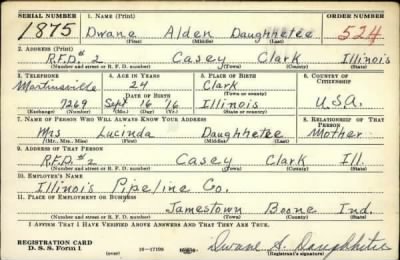 SERIAL NUMBER 1. NAME (Print) ORDER NUMBER
1875 Dwane Alden Daughhetee 524
(First) (Middle) (Last)
2. ADDRESS (Print)
R.F.D. # 2 Casey Clark Illinois
(Number and street or R. F. D. number) (Town) (County) (State)
3. TELEPHONE 4. AGE IN YEARS 5. PLACE OF BIRTH 6. COUNTRY OF CITIZENSHIP
Martinsville 24 Clark
DATE OF BIRTH (Town or county)
7269 Sept 16 16 Illinois U.S.A.
(Exchange) (Number) (Mo.) (Day) (Yr.) (State or country)
7. NAME OF PERSON WHO WILL ALWAYS KNOW YOUR ADDRESS 8. RELATIONSHIP OF THAT PERSON
Mrs Lucinda Daughhetee Mother
(Mr., Mrs., Miss) (First) (Middle) (Last)
9. ADDRESS OF THAT PERSON
R.F.D. # 2 Casey Clark Ill.
(Number and street or R. F. D. number) (Town) (County) (State)
10. EMPLOYER'S NAME
Illinois Pipeline Co.
11. PLACE OF EMPLOYMENT OR BUSINESS
Jamestown Boone Ind.
(Number and street or R. F. D. number) (Town) (County) (State)
I AFFIRM THAT I HAVE VERIFIED ABOVE ANSWERS AND THAT THEY ARE TRUE.
REGISTRATION CARD
D. S. S. Form 1 (over) 16-17198 Dwane A. Daughhetee
(Registrant's signature)